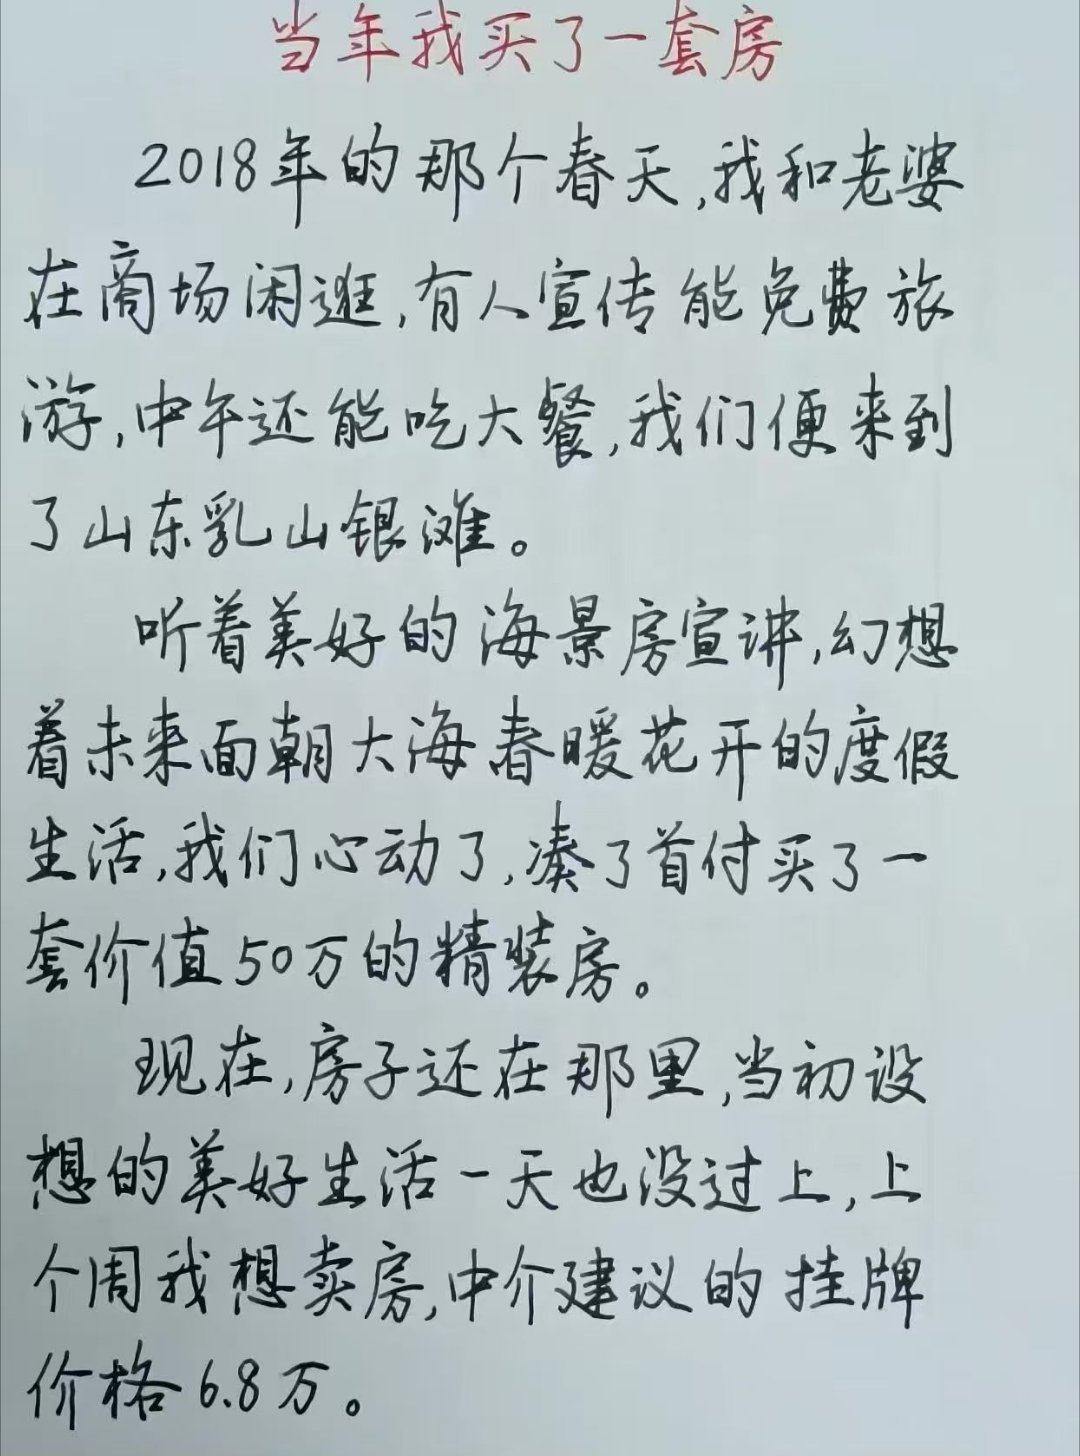 当年我买了一套房
2018年的那个春天,我和老婆
在商场闲逛,有人宣传能免费旅
游,中午还能吃大餐,我们便来到
了山东乳山银滩。
听着美好的海景房宣讲,幻想
着未来面朝大海春暖花开的度假
生活,我们心动了,凑了首付买了一
套价值50万的精装房。
现在,房子还在那里,当初设
想的美好生活一天也没过上,上
个周我想卖房,中介建议的挂牌
价格6.8万。